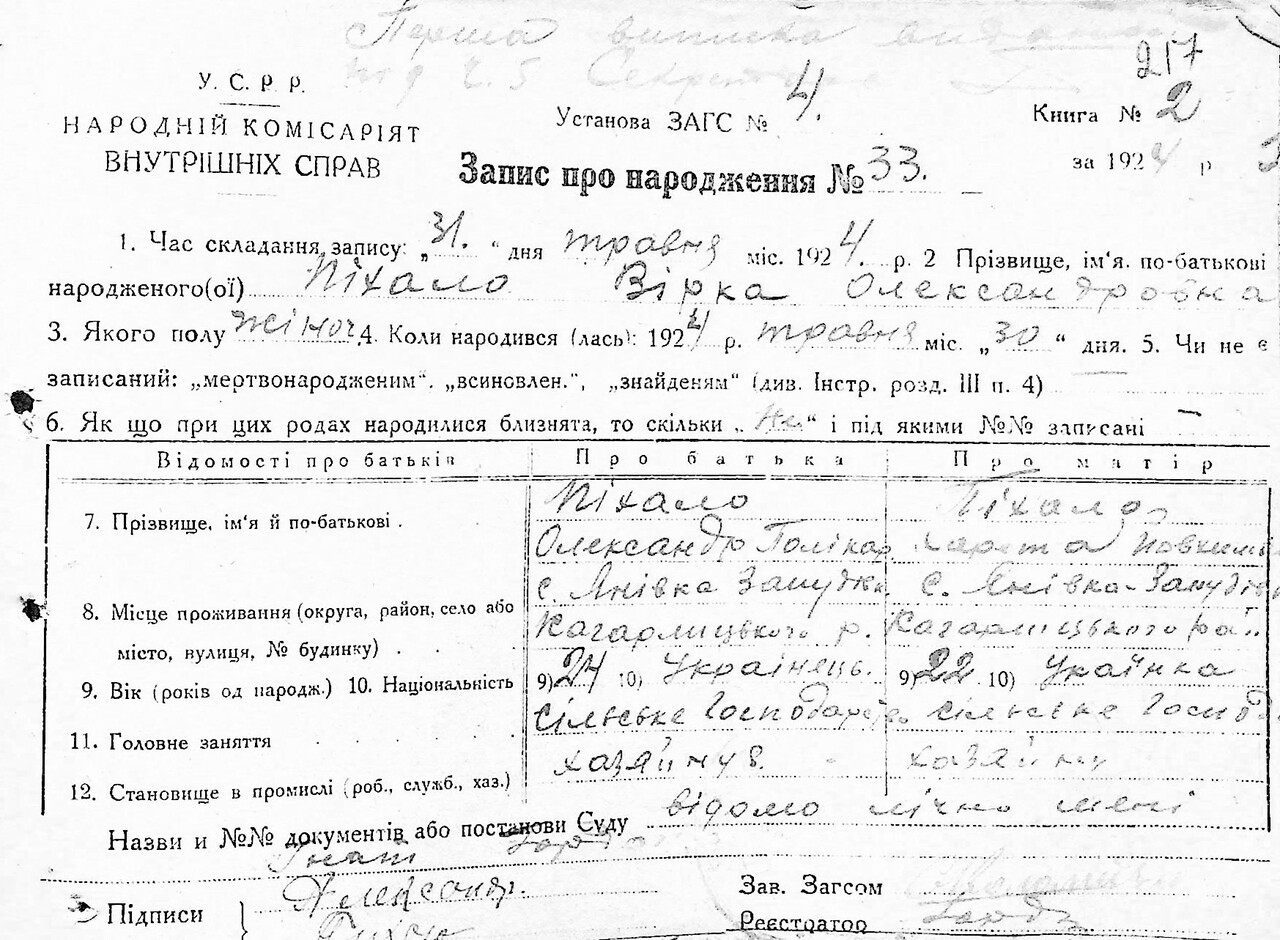 Перша виписка
217
У. С. Р. Р.
НАРОДНІЙ КОМІСАРІЯТ
ВНУТРІШНІХ СПРАВ
Установа ЗАГС № 4.
Книга № 2
за 1924 р
Запис про народження № 33.
1. Час складання запису: „31.“ дня травня міс. 1924. р. 2 Прізвище, ім'я. по-батькові
народженого(ої) Піхало Вірка Олександровна
3. Якого полу жіноч. 4. Коли народився (лась): 1924 р. травня міс. „30“ дня. 5. Чи не є
записаний: „мертвонародженим“. „всиновлен.", „знайденям“ (див. Інстр. розд. III п. 4)
6. Як що при цих родах народилися близнята, то скільки „ “ і під якими №№ записані —
Відомості про батьків Про батька Про матір
7. Прізвище, ім'я й по-батькові . Піхало Піхало
Олександр Полікар.
с. Янівка с. Янівка
8. Місце проживання (округа, район, село або
місто, вулиця, № будинку) . . Кагарлицького р. Кагарлицького рай.
9. Вік (років од народж.) 10. Національність 9) 24 10) Українець. 9) 22 10) Украінка
11. Головне заняття сільське Господарств. сільське Господ
12. Становище в промислі (роб., служб., хаз.) хазяйнує. хазяйну
Назви и №№ документів або постанови Суду відомо лічно мені
Підписи
Зав. Загсом
Реєстратор